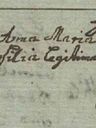 Anna Maria
filia legitima